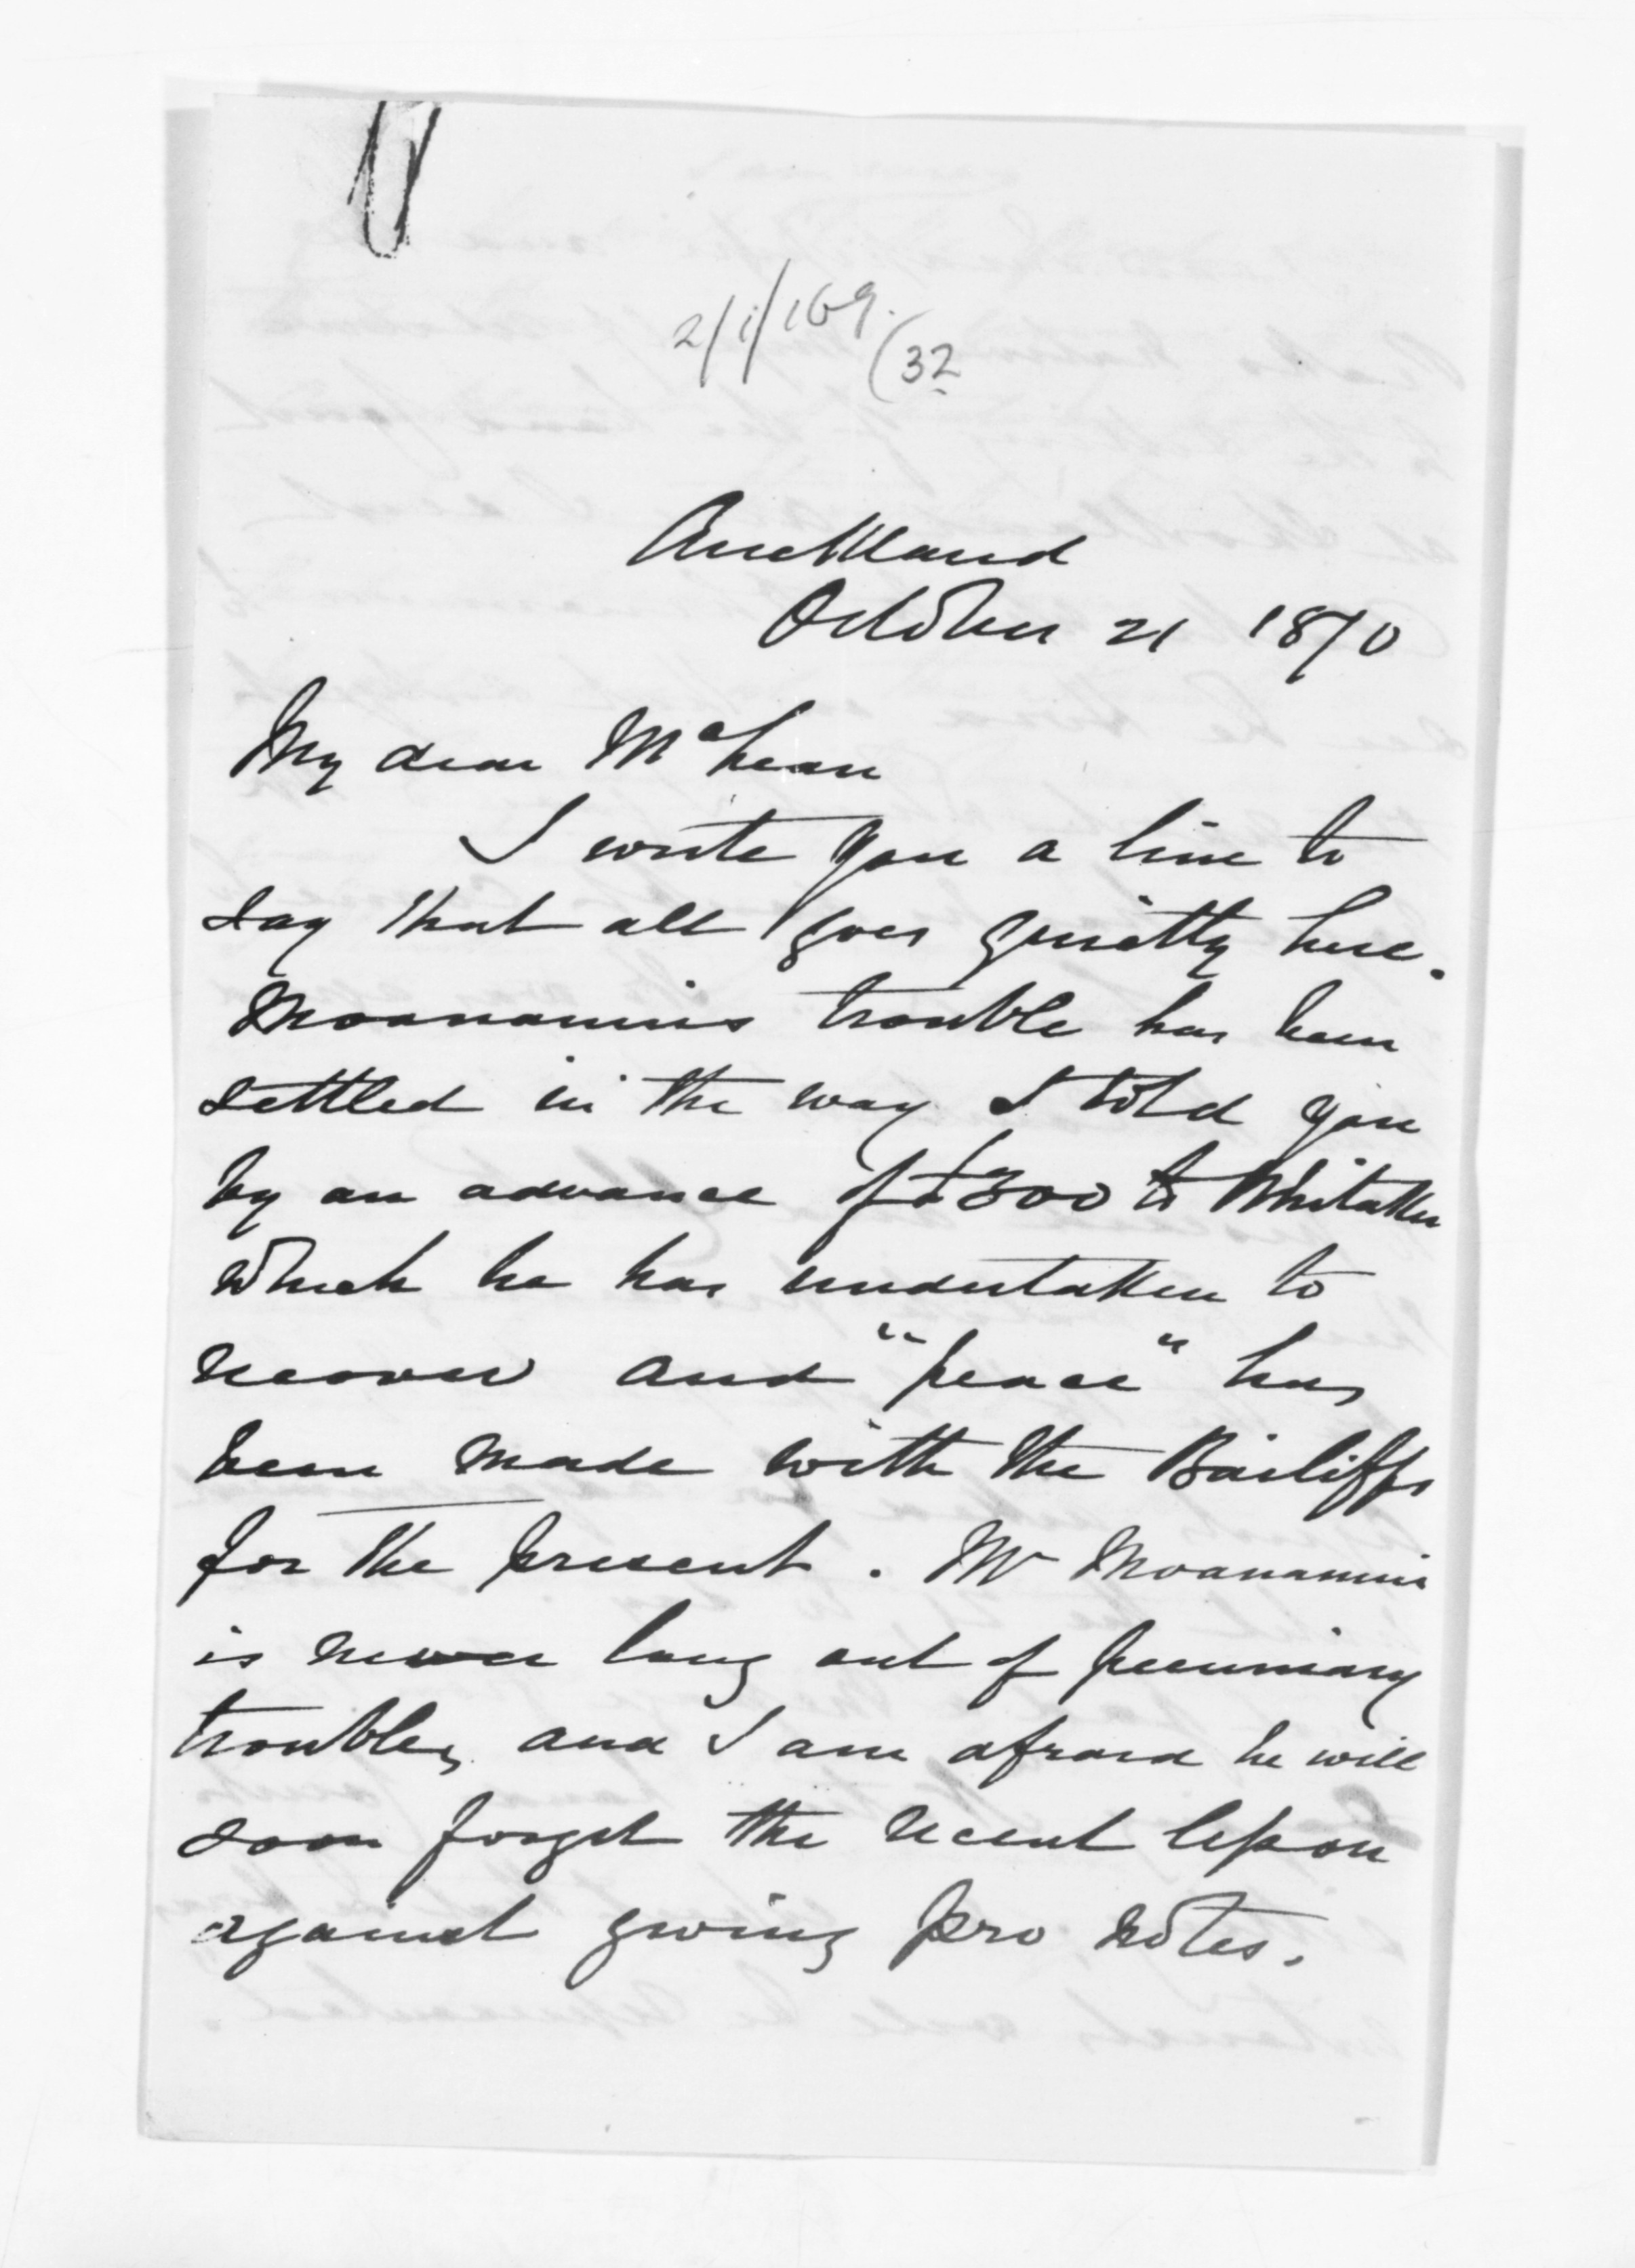 2/1/169.
(32
Auckland
October 21 1870
My dear McLean
I write you a line to
say that all goes quietly here.
Moananuis trouble has been
settled in the way I told you
by an advance of £300 to Whitaker
which he has undertaken to
recover and "peace" has
been made with the Bailiffs
for the present. Mr Moananui
is never long out of pecuniary
troubles, and I am afraid he will
soon forget the recent lesson
against giving pro notes.